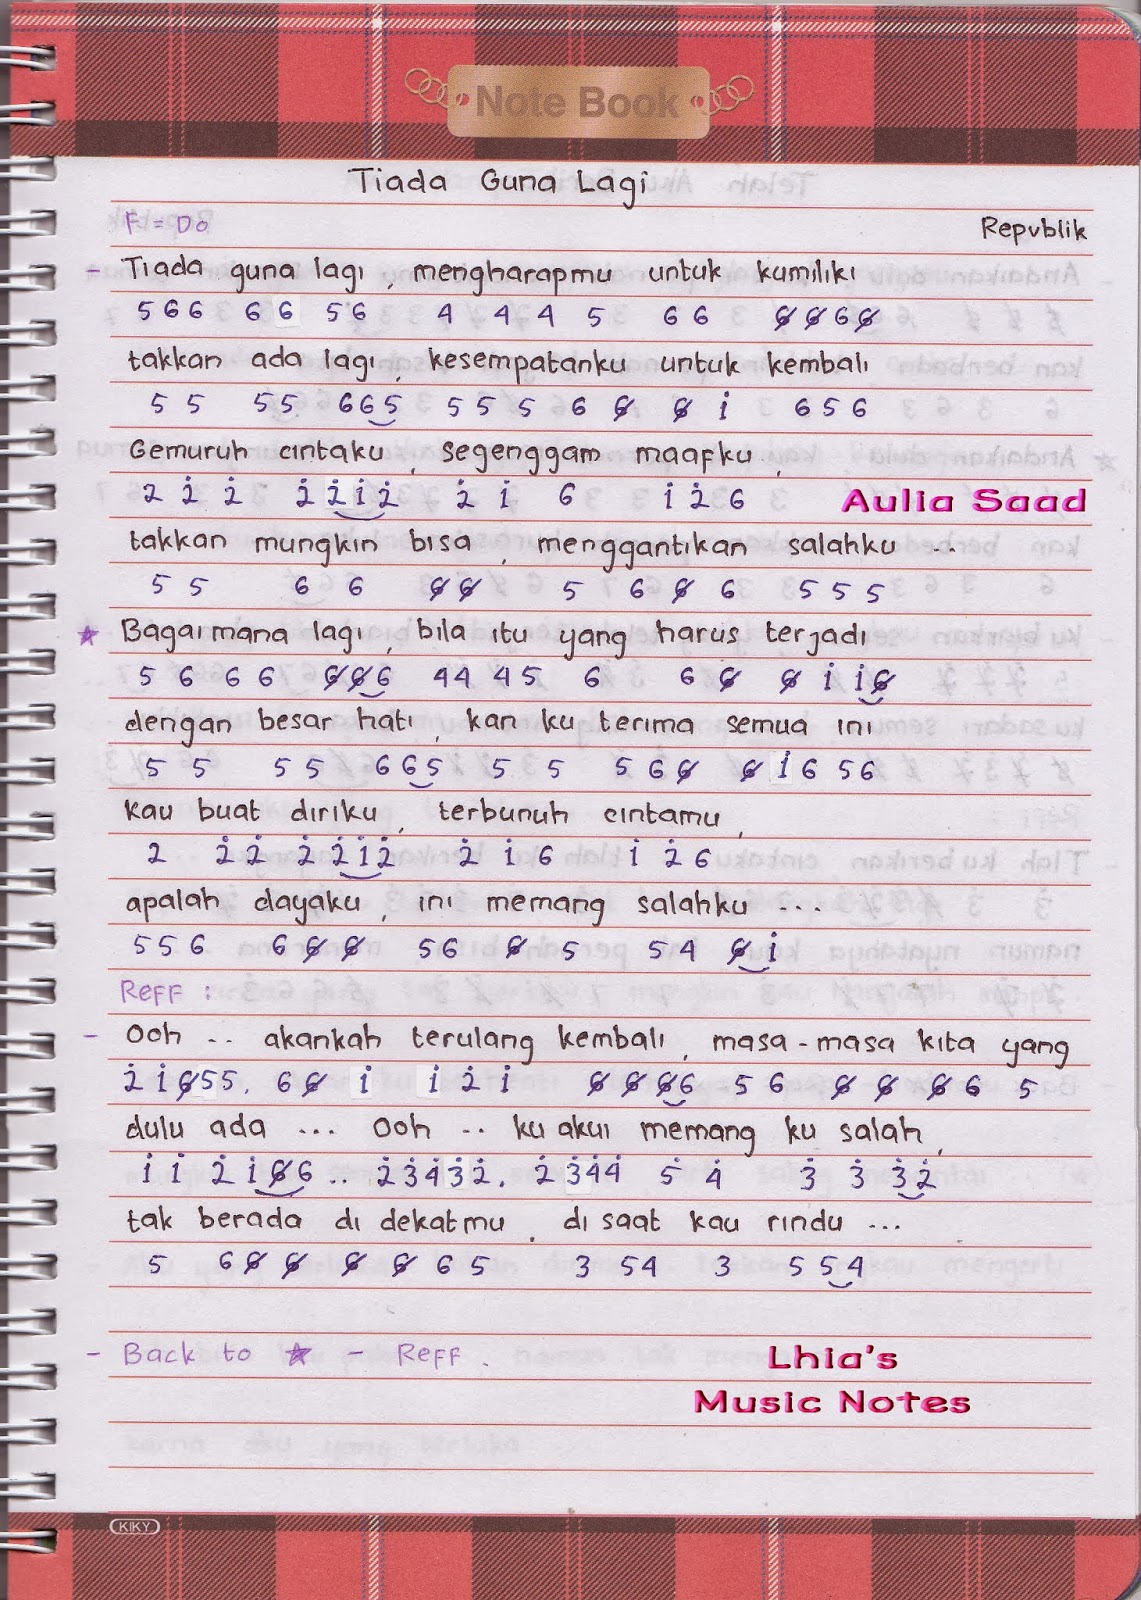 Note Book
Tiada Guna Lagi
F = Do
Republik
- Tiada guna lagi, mengharapmu untuk kumiliki
5 6 6 6 6 5 6 4 4 4 5 6 6 6̸ 6̸ 6 6̸
takkan ada lagi, kesempatanku untuk kembali
5 5 5 5 6 6 5 5 5 5 6 6̸ 6̸ i 6 5 6
Gemuruh cintaku, segenggam maafku,
2 2̇ 2̇ 2̇ 2̇ i 2̇ 2̇ i 6 i 2̇ 6
Aulia Saad
takkan mungkin bisa, menggantikan salahku ...
5 5 6 6 6̸ 6̸ 5 6 6̸ 6 5 5 5
★ Bagaimana lagi, bila itu yang harus terjadi
5 6 6 6 6̸ 6̸ 6 4 4 4 5 6 6 6̸ 6̸ i i 6̸
dengan besar hati, kan ku terima semua ini
5 5 5 5 6 6 5 5 5 5 6 6̸ 6̸ i 6 5 6
kau buat diriku, terbunuh cintamu,
2 2̇ 2̇ 2̇ 2̇ i 2̇ 2̇ i 6 i 2̇ 6
apalah dayaku, ini memang salahku ...
5 5 6 6 6̸ 6̸ 5 6 6̸ 5 5 4 6̸ i
Reff :
- Ooh .. akankah terulang kembali, masa-masa kita yang
2̇ i 6̸ 5 5. 6 6̸ i i 2̇ i 6̸ 6̸ 6̸ 6 5 6 6̸ 6̸ 6̸ 6 5
dulu ada ... Ooh .. ku akui memang ku salah,
i i 2̇ i 6̸ 6 .. 2̇ 3̇ 4̇ 3̇ 2̇. 2̇ 3̇ 4̇ 4̇ 5̇ 4̇ 3̇ 3̇ 3̇ 2̇
tak berada di dekatmu, di saat kau rindu ...
5 6 6̸ 6̸ 6̸ 6̸ 6 5 3 5 4 3 5 5 4
- Back to ★ - Reff.
Lhia's
Music Notes
KIKY